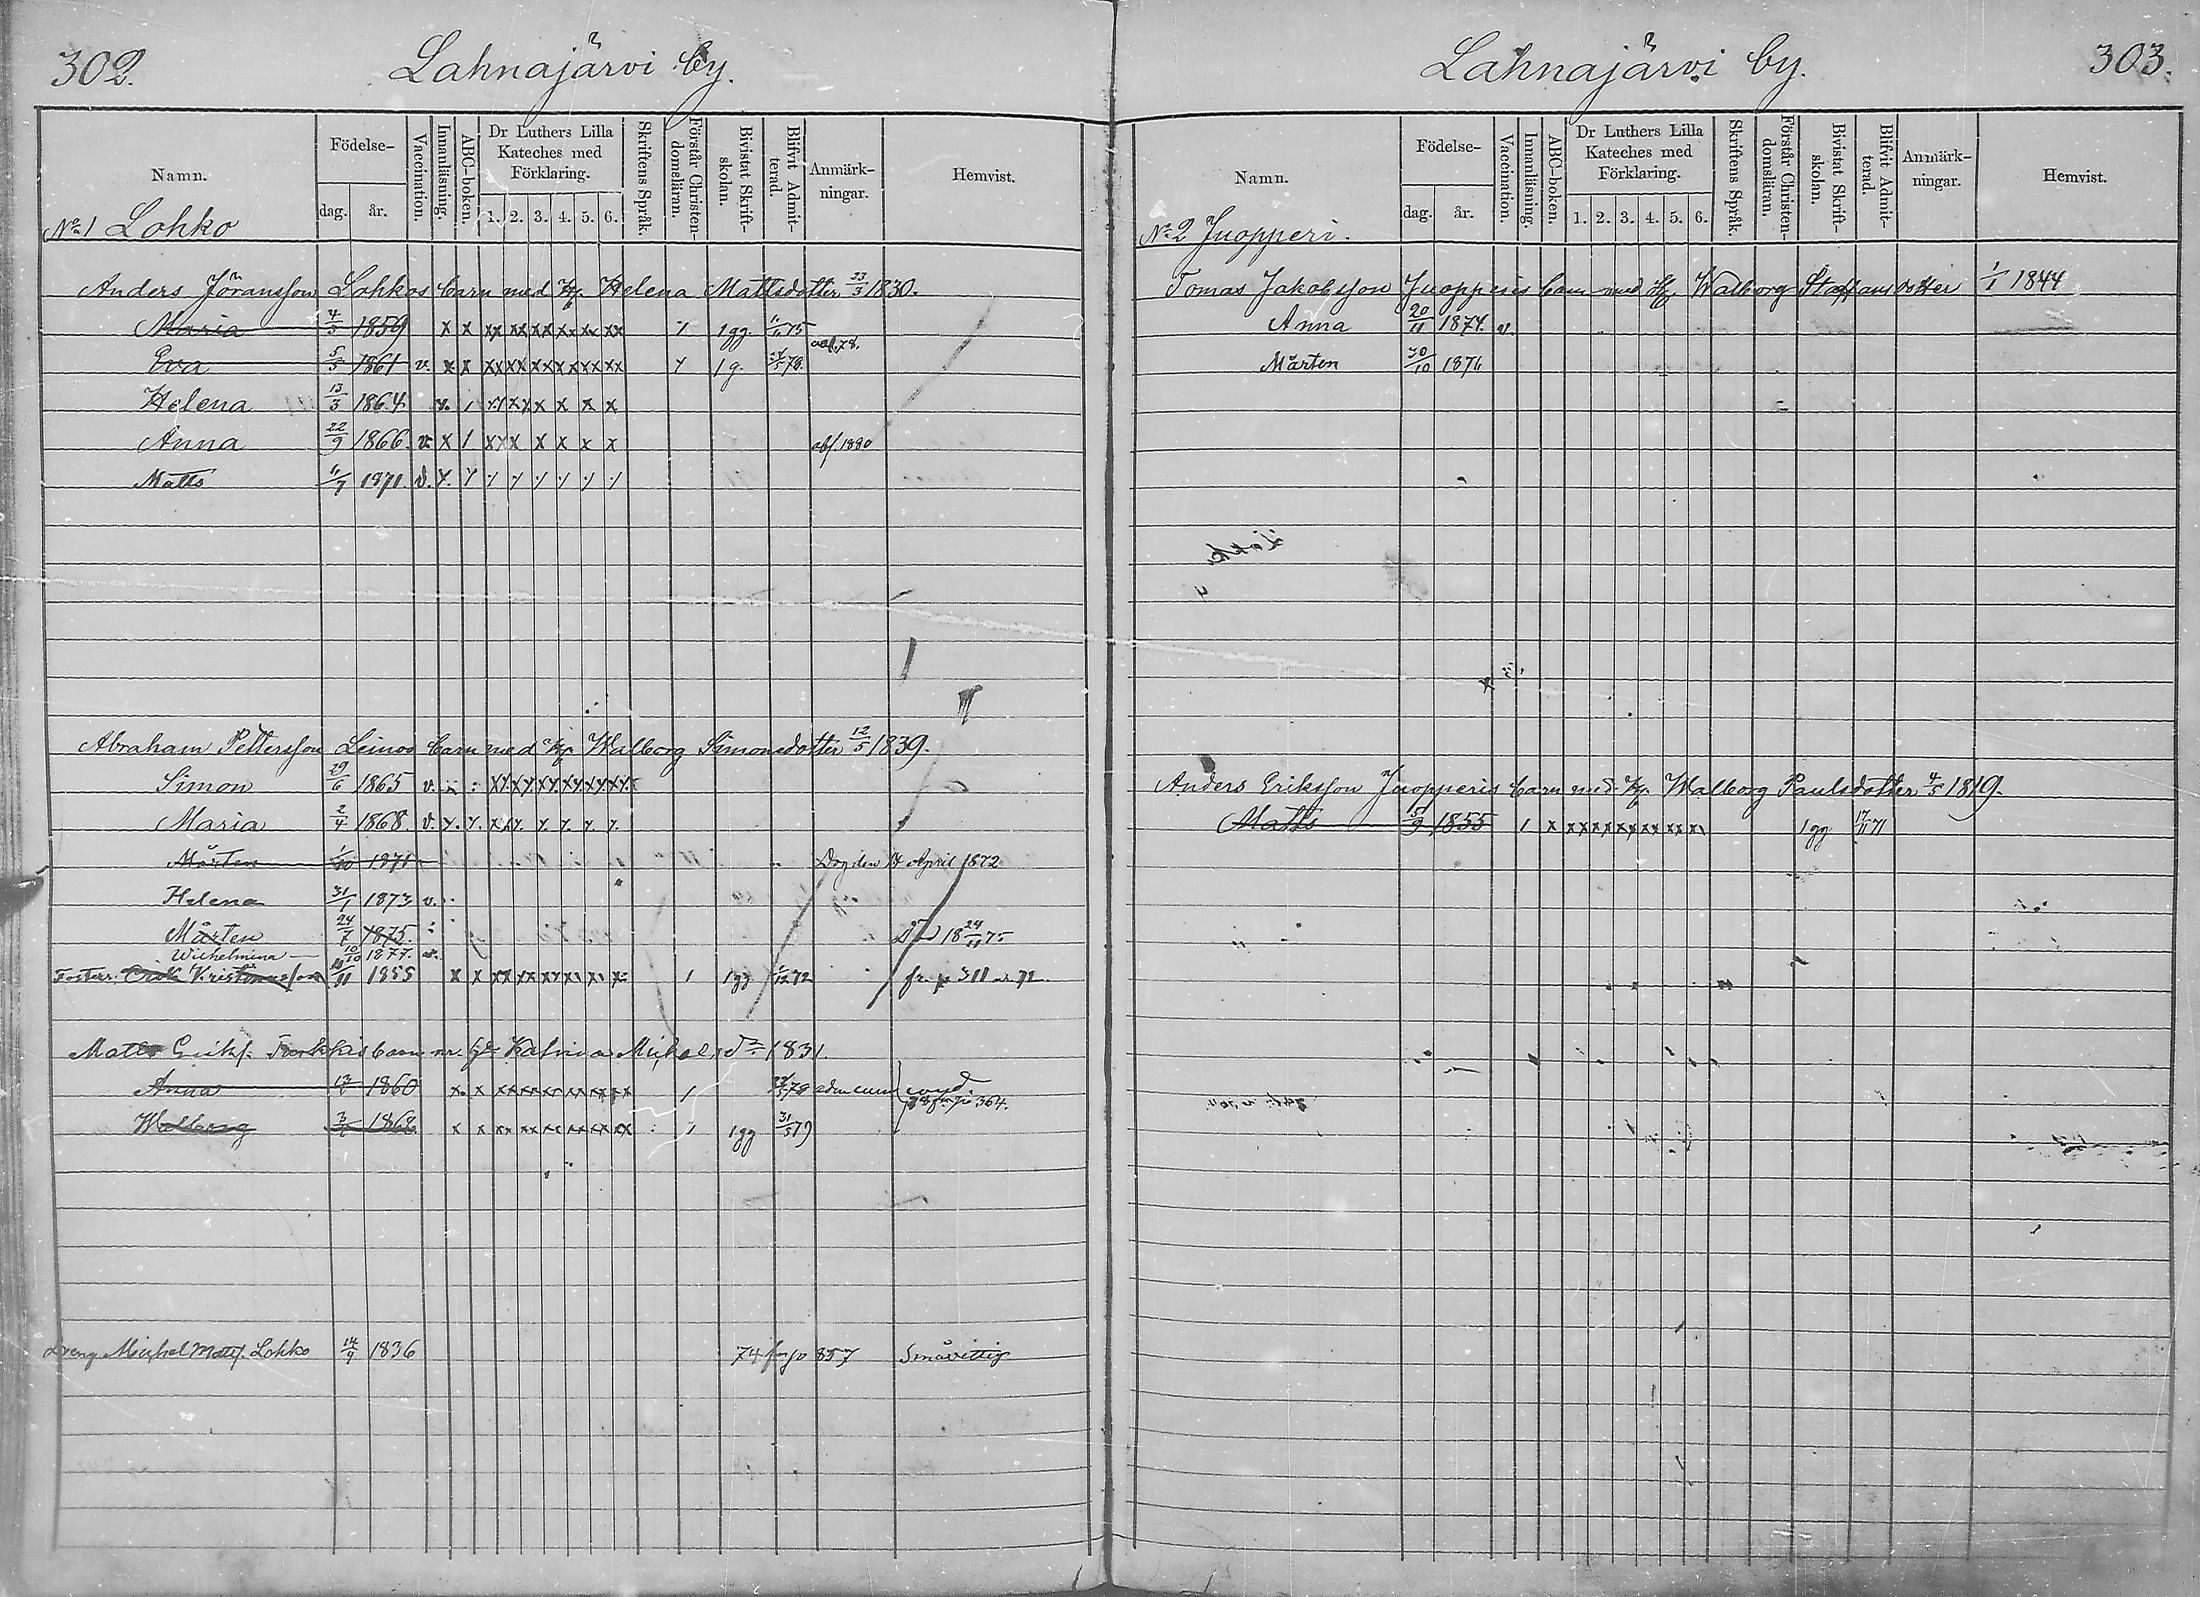 302. Lahnajärvi by.
Namn. Födelse- dag. år. Vaccination. Innanläsning. ABC-boken. Dr Luthers Lilla Kateches med Förklaring. 1. 2. 3. 4. 5. 6. Skriftens Språk. Förstår Christendomsläran. Bivistat Skriftskolan. Blifvit Admitterad. Anmärkningar. Hemvist.
No 1 Lohko
Anders Jöransson Lohkos barn med H. Helena Mattsdotter 23/3 1830.
Maria 4/5 1859 x x xx xx xx xx xx xx 1gg. 1/11 75
Eva 5/5 1861 v. x x xx xx xx xx xx xx 1g.
Helena 13/3 1864
Anna 22/9 1866 v. x 1 xx x x x x x abs. 1880
Matts 11/7 1871 v.
Abraham Pettersson Leinos barn med H. Walborg Simonsdotter 12/5 1839.
Simon 29/6 1865 v.
Maria 2/4 1868 v.
Mårten 1/10 1871 Dog den 14 April 1872
Helena 31/1 1873 v.
Mårten 24/7 1875. Död 18 24/11 75
Wilhelmina 10/10 1877. v.
Fosters. Erik Kristiansson /11 1855 x x 1 1gg 1/12 72 fr. p 311 ar 72
Matts Eriks. barn m. Michelsdr 1831.
Anna 1860 x x 1
Walborg 3/ 1862 x x 1 1gg 31/5 79
364.
Dreng Michel Matts. Lohko 14/9 1836 74 fr p 357 Småvittig
Lahnajärvi by. 303.
Namn. Födelse- dag. år. Vaccination. Innanläsning. ABC-boken. Dr Luthers Lilla Kateches med Förklaring. 1. 2. 3. 4. 5. 6. Skriftens Språk. Förstår Christendomsläran. Bivistat Skriftskolan. Blifvit Admitterad. Anmärkningar. Hemvist.
No 2 Juopperi.
Tomas Jakobsson Juopperis barn med H. Walborg Staffansdotter 1/1 1844
Anna 20/11 1874. v.
Mårten 30/10 1876
Anders Eriksson Juopperis barn med H. Walborg Paulsdotter 4/5 1819.
Matts 5/9 1855 1 x xx xx xx xx xx 1gg 17/11 71